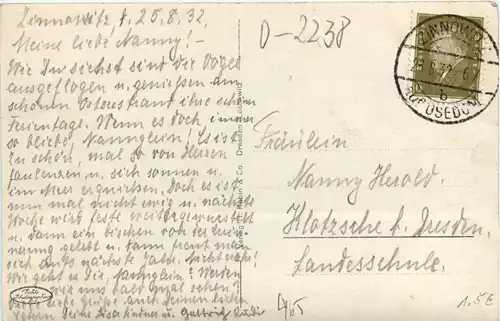 Zinnowitz, d. 25.8.32,
Meine liebe Nanny! –
Wie Du siehst sind die Vögel
ausgeflogen u. genießen am
schönen Ostseestrand ihre schönen
Ferientage. Wenn es doch immer
so bliebe, Nannylein! Es ist
zu schön, mal so von Herzen
faulenzen u. sich sonnen u.
im Meer erquicken. Doch es ist
nun mal nicht ewig u. nächste
Woche wird feste
u. dann ein bischen von der Erin-
nerung gelebt u. dann freut man
sich aufs nächste Jahr. Nicht wahr?
Wie geht es Dir, Nannylein? Werden
wir uns bald mal sehen?
liebe Grüße auch Deinen lieben
Eltern Deine u.
D-2238
ZINNOWITZ
b
USEDOM
Fräulein
Nanny Herold.
Klotzsche b. Dresden.
Landesschule.
& Co. Dresden
4/05
1.5€